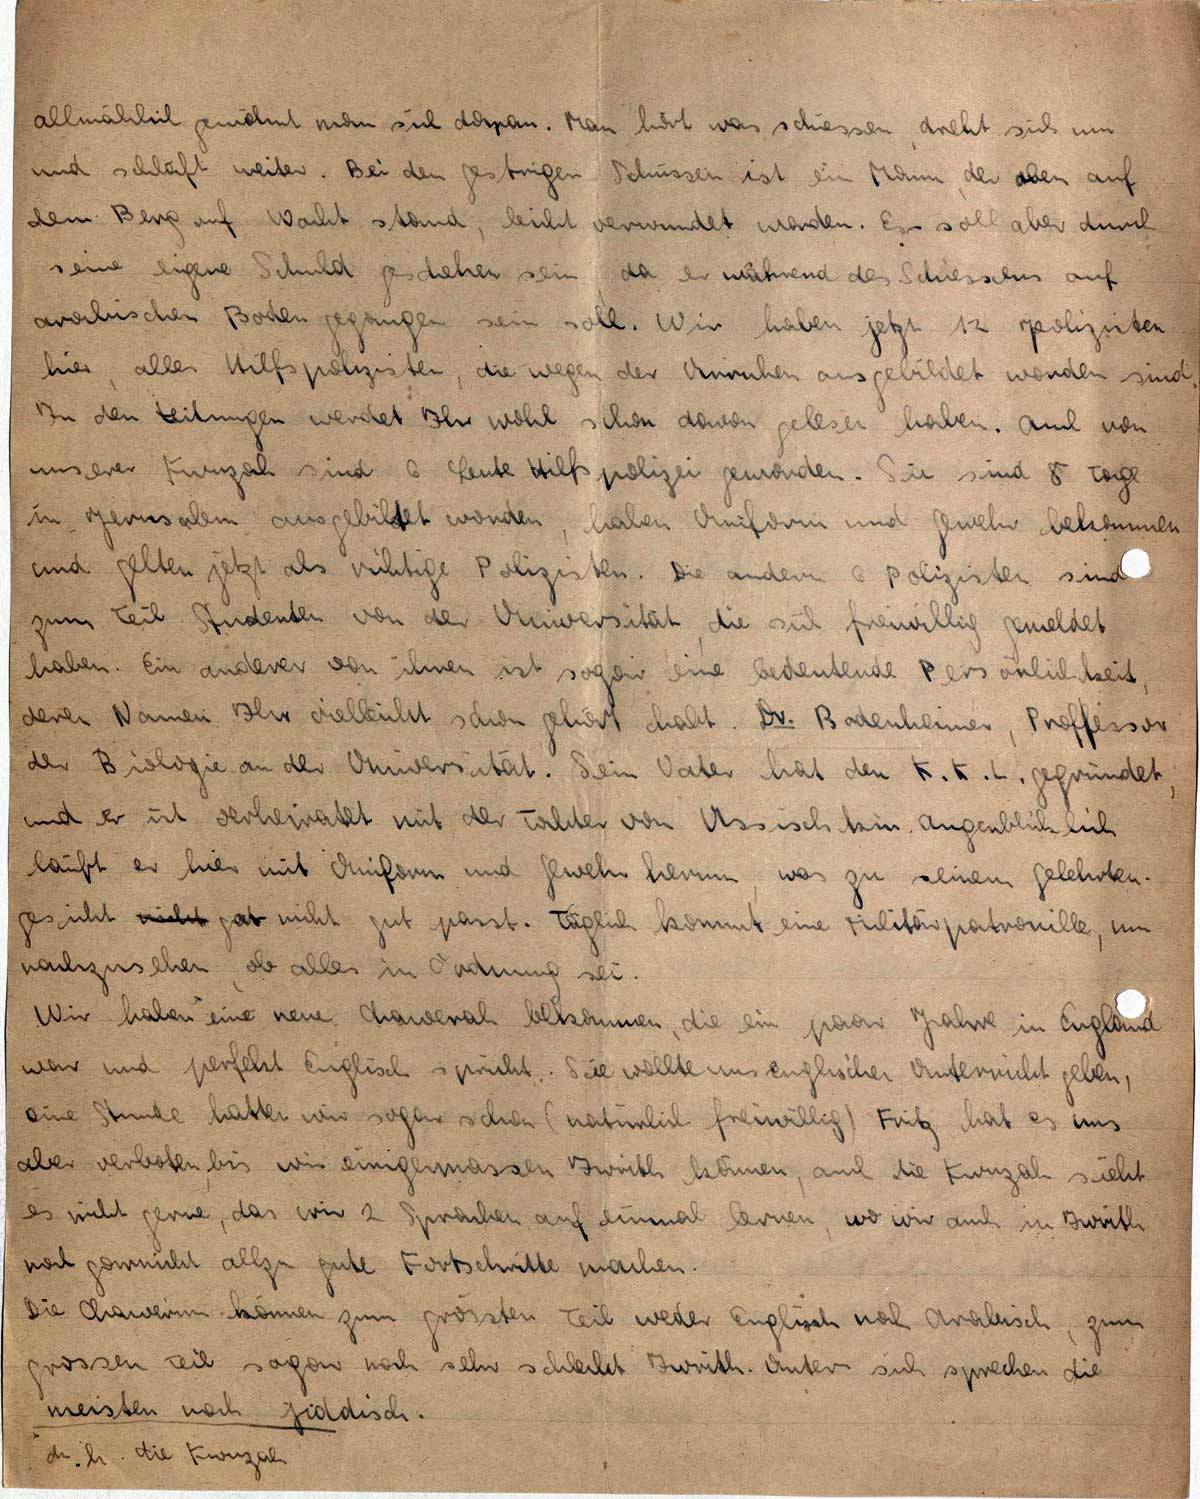 allmählich gewöhnt man sich daran. Man hört was schiessen, dreht sich um
und schläft weiter. Bei den gestrigen Schüssen ist ein Mann, der oben auf
dem Berg auf Wacht stand, leicht verwundet worden. Es soll aber durch
seine eigene Schuld geschehen sein, da er während des Schiessens auf
arabischen Boden gegangen sein soll. Wir haben jetzt 12 Polizisten
hier, alles Hilfspolizisten, die wegen der Unruhen ausgebildet worden sind.
In den Zeitungen werdet Ihr wohl schon davon gelesen haben. Auch von
unserer Kwuzah sind 6 Leute Hilfspolizei geworden. Sie sind 8 Tage
in Jerusalem ausgebildet worden, haben Uniform und Gewehr bekommen
und gelten jetzt als richtige Polizisten. Die andern 6 Polizisten sind
zum Teil Studenten von der Universität, die sich freiwillig gemeldet
haben. Ein anderer von ihnen ist sogar eine bedeutende Persönlichkeit,
deren Namen Ihr vielleicht schon gehört habt. Dr. Bodenheimer, Proffessor
der Biologie an der Universität. Sein Vater hat den K.K.L. gegründet,
und er ist verheiratet mit der Tochter von Ussischkin. Augenblicklich
läuft er hier mit Uniform und Gewehr herum, was zu seinem Gelehrten-
gesicht nicht gat nicht gut passt. Täglich kommt eine Militärpatrouille, um
nachzusehen, ob alles in Ordnung sei.
Wir haben eine neue Chawerah bekommen, die ein paar Jahre in England
war und perfekt Englisch spricht. Sie wollte uns englischen Unterricht geben,
eine Stunde hatten wir sogar schon (natürlich freiwillig) Fritz hat es uns
aber verboten, bis wir einigermassen Iwrith können, auch die Kwuzah sieht
es nicht gerne, das wir 2 Sprachen auf einmal lernen, wo wir auch in Iwrith
noch garnicht allzu gute Fortschritte machen.
Die Chawerim können zum grössten Teil weder Englisch noch Arabisch, zum
grossen Teil sogar noch sehr schlecht Iwrith. Unter sich sprechen die
meisten noch Jiddisch.
d.h. die Kwuzah